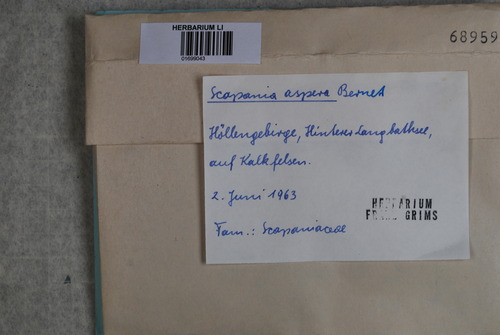 HERBARIUM LI
01699043
68959
Scapania aspera Bernet
Höllengebirge, Hinterer Langbathsee,
auf Kalkfelsen.
2. Juni 1963
HERBARIUM
FRANZ GRIMS
Fam.: Scapaniaceae